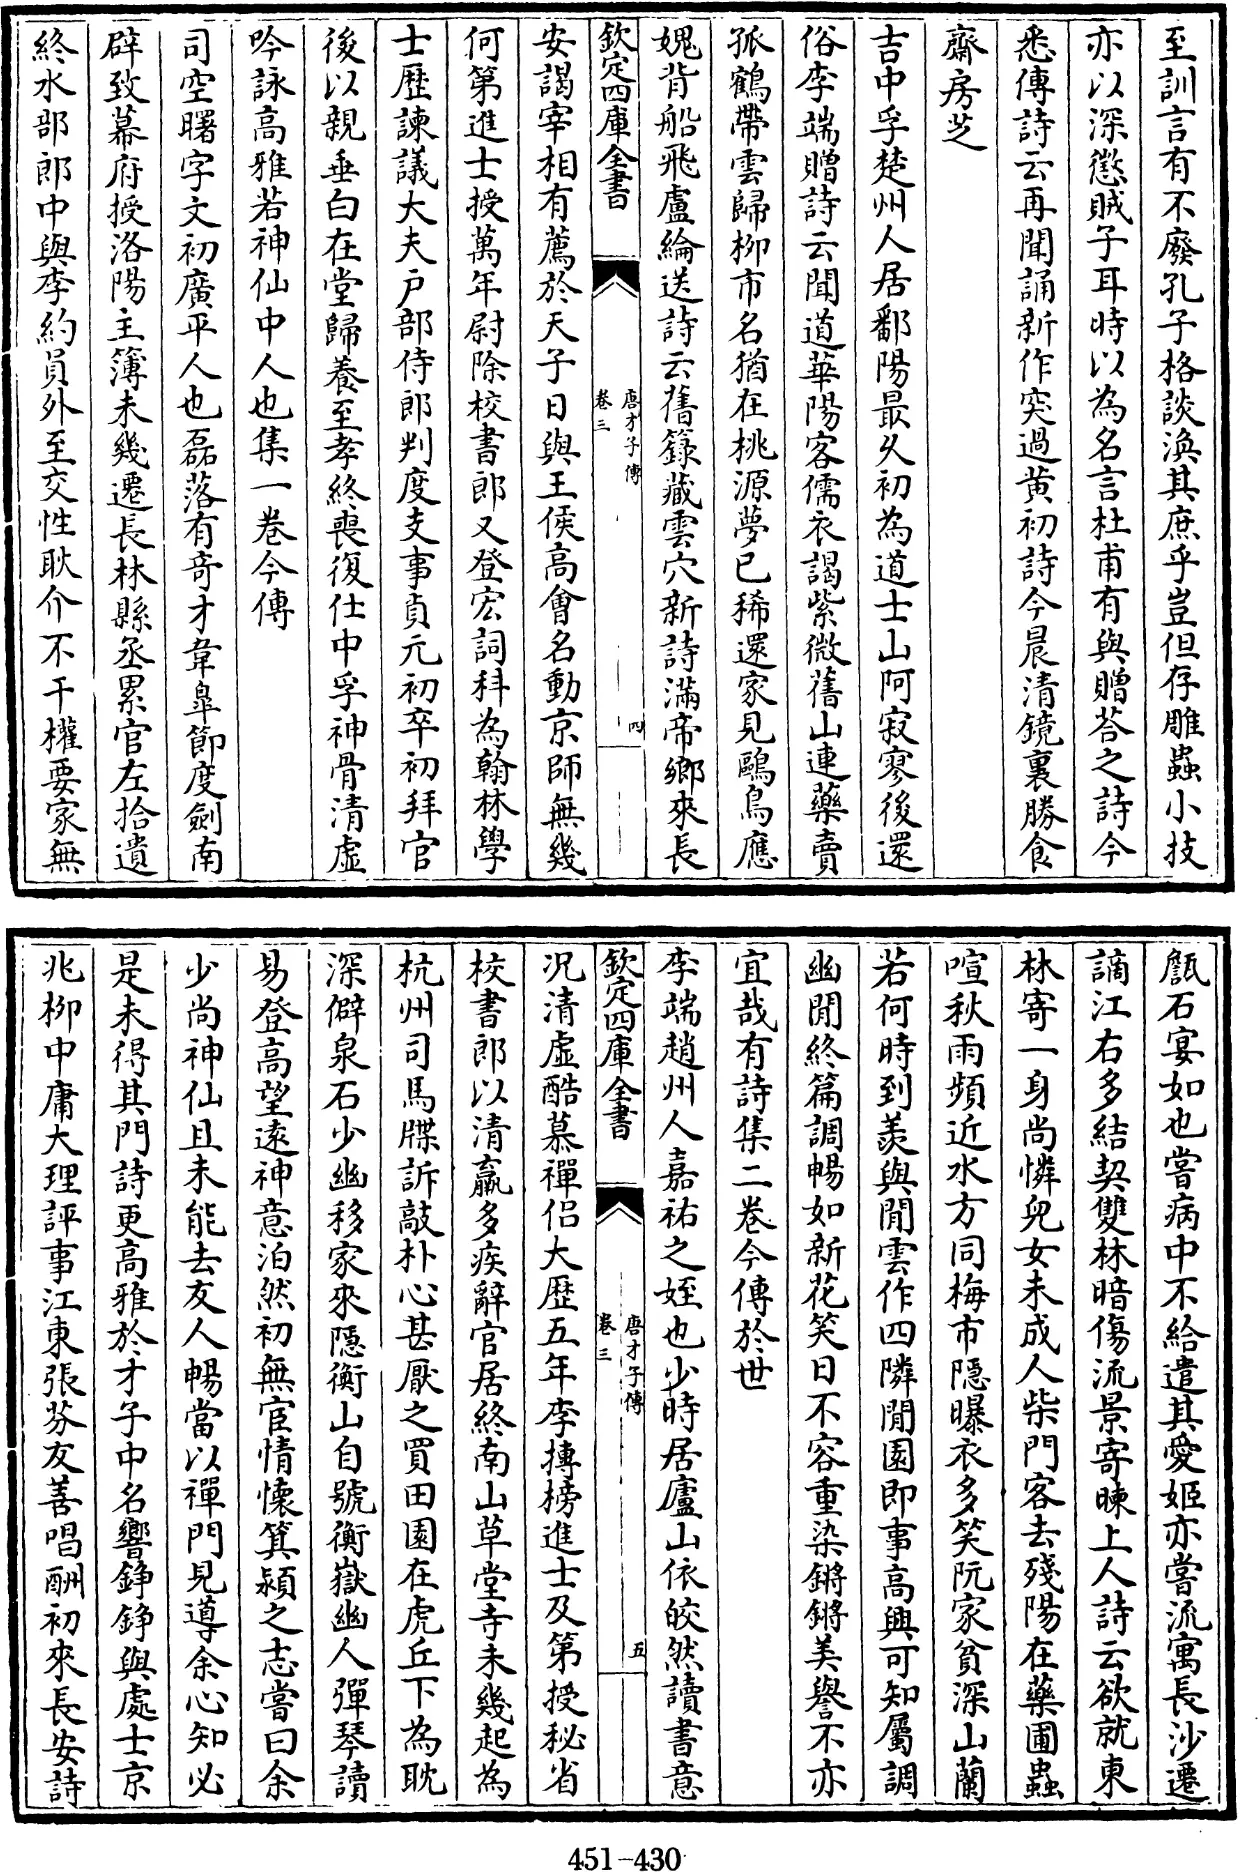 至訓言有不廢孔子格談渙其庶乎豈但存雕蟲小技
亦以深懲賊子耳時以為名言杜甫有與贈荅之詩今
悉傳詩云再聞誦新作突過黄初詩今晨清鏡裏勝食
齋房芝
吉中孚楚州人居鄱陽最久初為道士山阿寂寥後還
俗李端贈詩云聞道華陽客儒衣謁紫微舊山連藥賣
孤鶴帶雲歸柳市名猶在桃源夢已稀還家見鷗鳥應
媿背船飛盧綸送詩云舊籙藏雲穴新詩滿帝鄉來長
欽定四庫全書
唐才子傳
卷三
四
安謁宰相有薦於天子日與王侯高會名動京師無幾
何第進士授萬年尉除校書郎又登宏詞科為翰林學
士歷諫議大夫戶部侍郎判度支事貞元初卒初拜官
後以親垂白在堂歸養至孝終喪復仕中孚神骨清虛
吟詠高雅若神仙中人也集一卷今傳
司空曙字文初廣平人也磊落有奇才韋皐節度劍南
辟致幕府授洛陽主簿未幾遷長林縣丞累官左拾遺
終水部郎中與李約員外至交性耿介不干權要家無
甔石宴如也嘗病中不給遣其愛姬亦嘗流寓長沙遷
謫江右多結契雙林暗傷流景寄暕上人詩云欲就東
林寄一身尚憐兒女未成人柴門客去殘陽在藥圃蟲
喧秋雨頻近水方同梅市隱曝衣多笑阮家貧深山蘭
若何時到羨與閒雲作四隣閒園即事高興可知屬調
幽閒終篇調暢如新花笑日不容重染鏘鏘美譽不亦
宜哉有詩集二卷今傳於世
李端趙州人嘉祐之姪也少時居廬山依皎然讀書意
欽定四庫全書
唐才子傳
卷三
五
况清虛酷慕禪侣大歷五年李摶榜進士及第授秘省
校書郎以清羸多疾辭官居終南山草堂寺未幾起為
杭州司馬牒訴敲朴心甚厭之買田園在虎丘下為耽
深僻泉石少幽移家來隱衡山自號衡嶽幽人彈琴讀
易登高望遠神意泊然初無宦情懷箕潁之志嘗曰余
少尚神仙且未能去友人暢當以禪門見導余心知必
是未得其門詩更高雅於才子中名響錚錚與處士京
兆柳中庸大理評事江東張芬友善唱酬初來長安詩
451-430